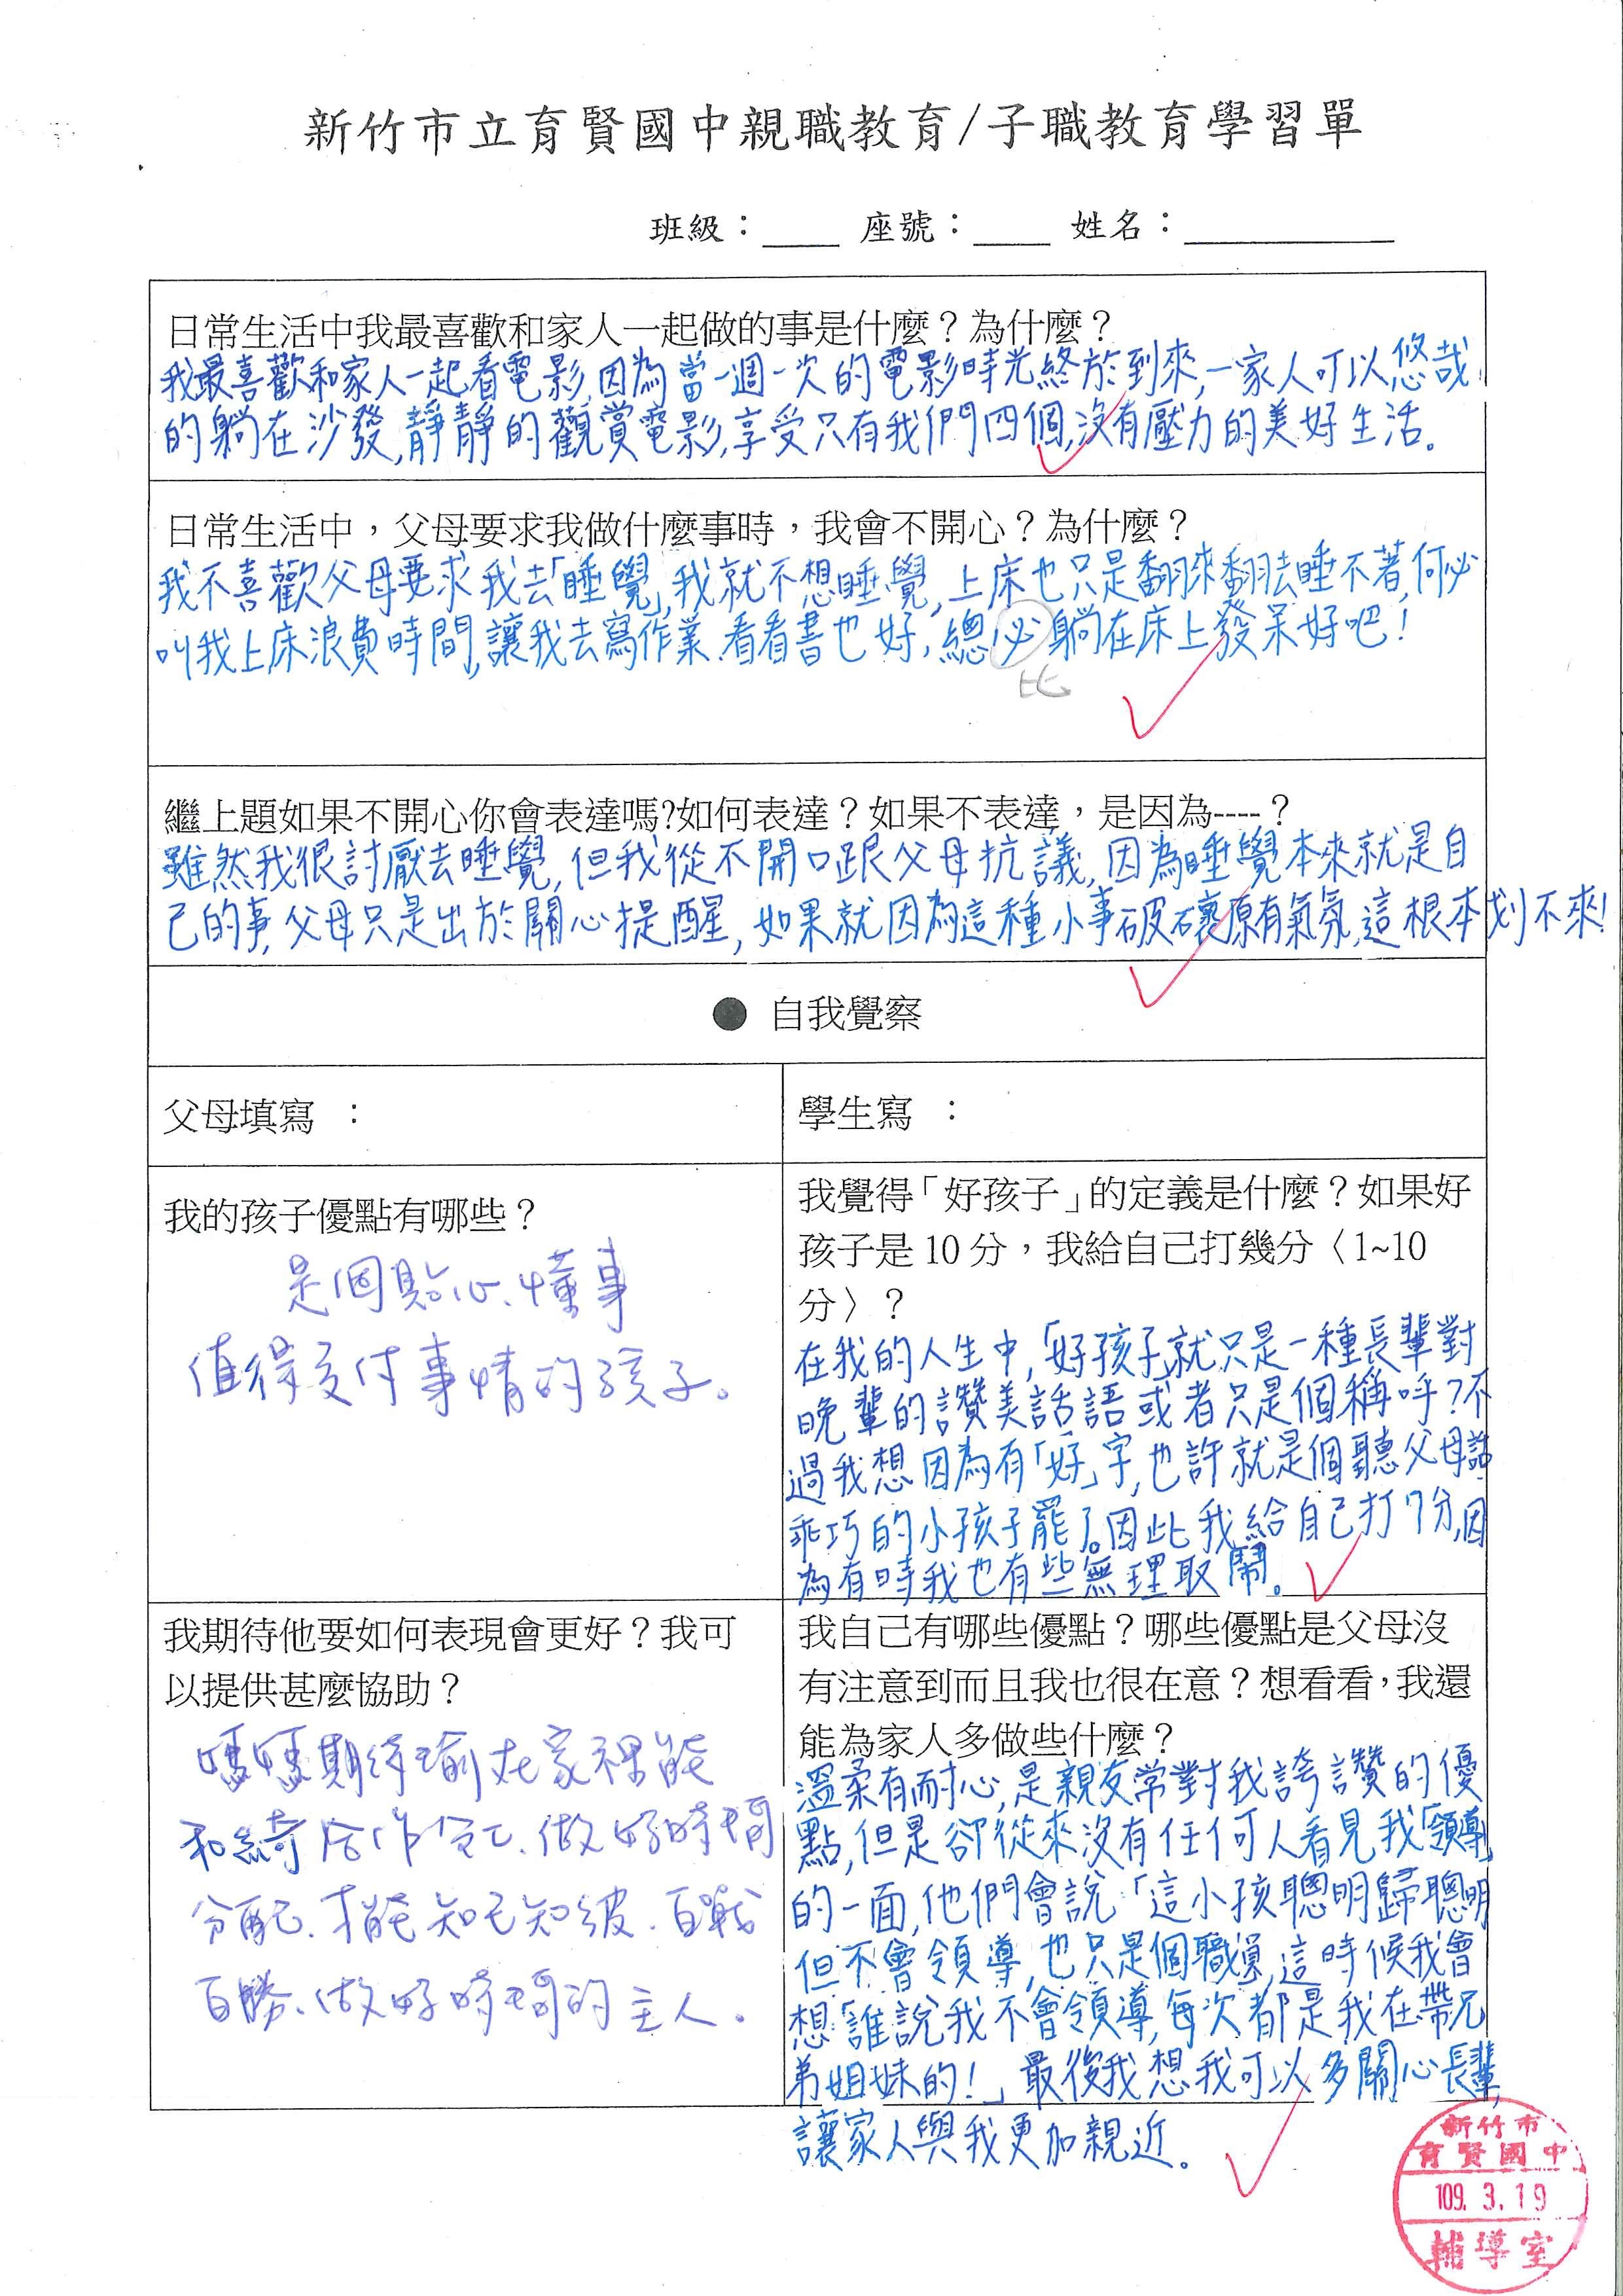 新竹市立育賢國中親職教育/子職教育學習單
班級：____ 座號：____ 姓名：__________
日常生活中我最喜歡和家人一起做的事是什麼？為什麼？
我最喜歡和家人一起看電影,因為當一週一次的電影時光終於到來,一家人可以悠哉
的躺在沙發,靜靜的觀賞電影,享受只有我們四個,沒有壓力的美好生活。
日常生活中，父母要求我做什麼事時，我會不開心？為什麼？
我不喜歡父母要求我去「睡覺」,我就不想睡覺,上床也只是翻來翻去睡不著,何必
叫我上床浪費時間,讓我去寫作業、看看書也好,總必躺在床上發呆好吧!
比
繼上題如果不開心你會表達嗎?如何表達？如果不表達，是因為----？
雖然我很討厭去睡覺,但我從不開口跟父母抗議,因為睡覺本來就是自
己的事,父母只是出於關心提醒,如果就因為這種小事破壞原有氣氛,這根本划不來!
● 自我覺察
父母填寫 ：
學生寫 ：
我的孩子優點有哪些？
是個貼心、懂事
值得交付事情的孩子。
我覺得「好孩子」的定義是什麼？如果好
孩子是 10 分，我給自己打幾分〈1~10
分〉？
在我的人生中,「好孩子」就只是一種長輩對
晚輩的讚美話語或者只是個稱呼?不
過我想因為有「好」字,也許就是個聽父母話
乖巧的小孩子罷了。因此我給自己打7分,因
為有時我也有些無理取鬧。
我期待他要如何表現會更好？我可
以提供甚麼協助？
媽媽期待瑜在家裡能
和綺合作分工、做好時間
分配、才能知己知彼、百戰
百勝、做好時間的主人。
我自己有哪些優點？哪些優點是父母沒
有注意到而且我也很在意？想看看，我還
能為家人多做些什麼？
溫柔有耐心,是親友常對我誇讚的優
點,但是卻從來沒有任何人看見我「領導」
的一面,他們會說「這小孩聰明歸聰明
但不會領導,也只是個職員,這時候我會
想「誰說我不會領導,每次都是我在帶兄
弟姐妹的!」最後我想我可以多關心長輩,
讓家人與我更加親近。
新竹市
育賢國中
109.3.19
輔導室